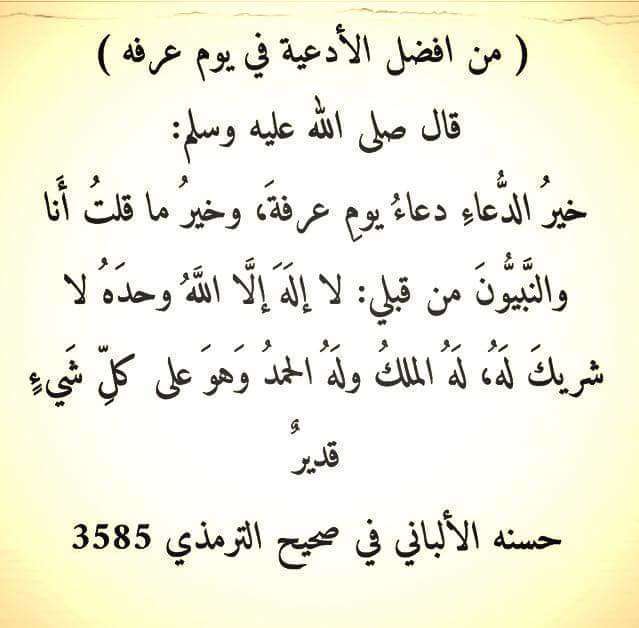 ( من افضل الأدعية في يوم عرفه )
قال صلى الله عليه وسلم:
خيرُ الدُّعاءِ دعاءُ يومِ عرفةَ، وخيرُ ما قلتُ أَنا
والنَّبيُّونَ من قبلي: لا إلَهَ إلَّا اللَّهُ وحدَهُ لا
شريكَ لَهُ، لَهُ الملكُ ولَهُ الحمدُ وَهوَ على كلِّ شَيءٍ
قديرٌ
حسنه الألباني في صحيح الترمذي 3585